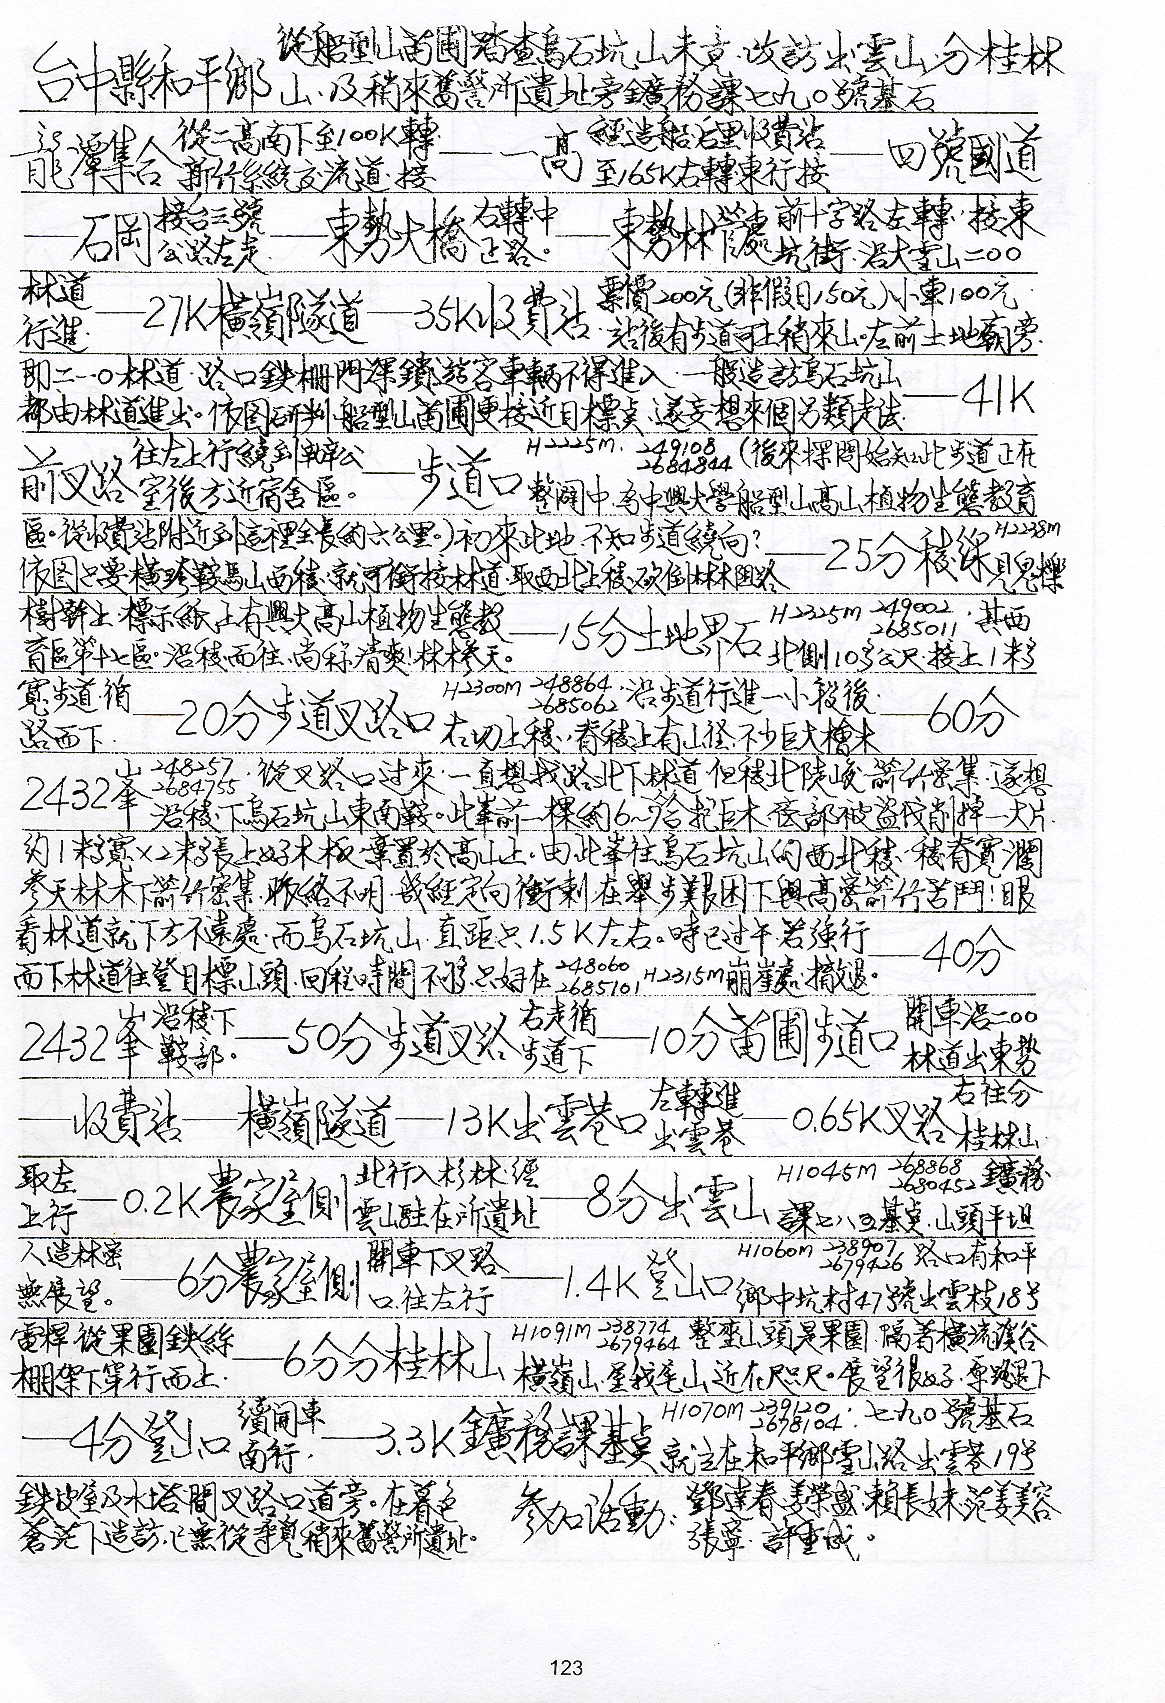 台中縣和平鄉 從船型山苗圃踏查烏石坑山未竟·改訪出雲山·分桂林
山·及稍來舊警所遺址旁鑛務課七九〇號基石
龍潭集合 從二高南下至100K轉 —— 一高 經造船后里收費站 —— 四號國道
新竹系統交流道·接 至165K右轉東行接
—— 石岡 接台三號 —— 東勢大橋 右轉中 —— 東勢林管處 前十字路左轉·接東
公路左走 正路。 坑街·沿大雪山二〇〇
林道 —— 27K橫嶺隧道 —— 35K收費站 票價200元(非假日150元)小車100元·
行進· 站後有步道可上稍來山。左前土地廟旁·
即二一〇林道·路口鉄柵門深鎖·遊客車輛不得進入·一般造訪烏石坑山
都由林道進出。依图研判·船型山苗圃更接近目標点·遂妄想來個另類走法 —— 41K
前叉路 往左上行繞到辦公 —— 步道口 H2225M· 249108 2684844 (後來探問始知此步道正在
室後方近宿舍區。 整闢中·為中興大學船型山高山植物生態教育
區。從收費站附近到這裡全長約六公里。)初來此地·不知步道繞向? —— 25分稜線 H2238M
依图只要橫跨鞍馬山西稜·就可銜接林道·取西北上稜·砍倒林木阻路 見鬼櫟
樹幹上·標示紙上有興大高山植物生態教 —— 15分土地界石 H2325M 249002 2685011·其西
育區第十七區。沿稜而往·尚称清爽!林木參天。 北側10多公尺·接上1米多
寬步道·循 —— 20分步道叉路口 H2300M 248864 2685062·沿步道行進一小段後· —— 60分
路而下· 右切上稜·脊稜上有山徑·不少巨大檜木
2432山峯 248257 2684755·從叉路口过來·一直想找路北下林道·但稜北陡峻·箭竹密集·遂想
沿稜·下烏石坑山東南鞍。此峯前一棵約6~7合抱巨木·底部被盜伐削掉一大片·
約1米多寬×2米多長上好木板·棄置於高山上。由此峯往烏石坑山的西北稜·稜脊寬濶
參天林木下箭竹密集·脈絡不明·幾經定向衝刺·在舉步艱困下與高密箭竹苦鬥!眼
看林道就下方不遠處·而烏石坑山·直距只1.5K左右。時已过午·若強行 —— 40分
而下林道往登目標山頭·回程時間不夠·只好在 248060 2685101 H2315M崩崖處·撤退。
2432山峯 沿稜下 —— 50分步道叉路 右走循 —— 10分苗圃步道口 開車沿二〇〇
鞍部。 步道下 林道出東勢
—— 收費站 —— 橫嶺隧道 —— 13K出雲巷口 左轉進 —— 0.65K叉路 右往分
出雲巷 桂林山
取左 —— 0.2K農家屋側 北行入杉林·經 —— 8分出雲山 H1045M 268868 2680452 鑛務
上行 雲山駐在所遺址 課七八五基点·山頭平坦
人造林密 —— 6分農家屋側 開車下叉路 —— 1.4K登山口 H1060M 238907 2679426 路口有和平
無展望。 口·往左行 鄉中坑村47號出雲枝18号
電桿·從果園鉄絲 —— 6分分桂林山 H1091M 238774 2679464 整座山頭是果園·隔著橫流溪谷
棚架下穿行而上· 橫嶺山·屋我尾山·近在咫尺。展望很好·原路退下
—— 4分登山口 續開車 —— 3.3K鑛務課基点 H1070M 239120 2678104:七九〇號基石
南行· 就立在和平鄉雪山路出雲巷19号
鉄皮屋及水塔間叉路口道旁。在暮色 參加活動: 鄧達春·姜榮盛·賴長妹·范姜容
蒼茫下造訪·已無從尋覓稍來舊警所遺址。 張寧·許重成。
123